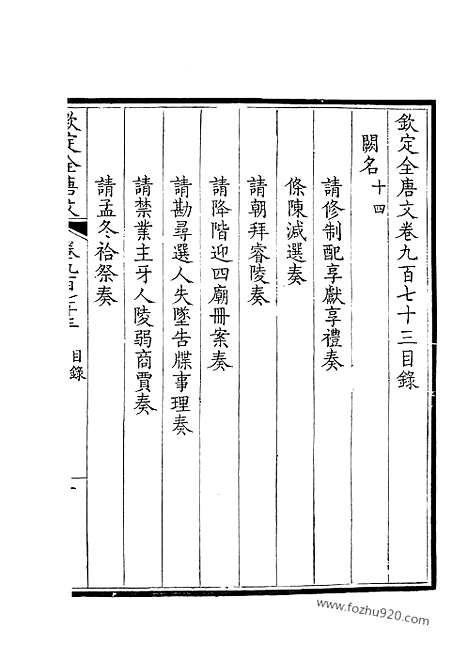 欽定全唐文卷九百七十三目錄
闕名十四
請修制配享獻享禮奏
條陳減選奏
請朝拜睿陵奏
請降階迎四廟冊案奏
請勘尋選人失墜告牒事理奏
請禁業主牙人陵弱商賈奏
請孟冬祫祭奏
欽定全唐文 卷九百七十三 目錄 一
www.fozhu920.com